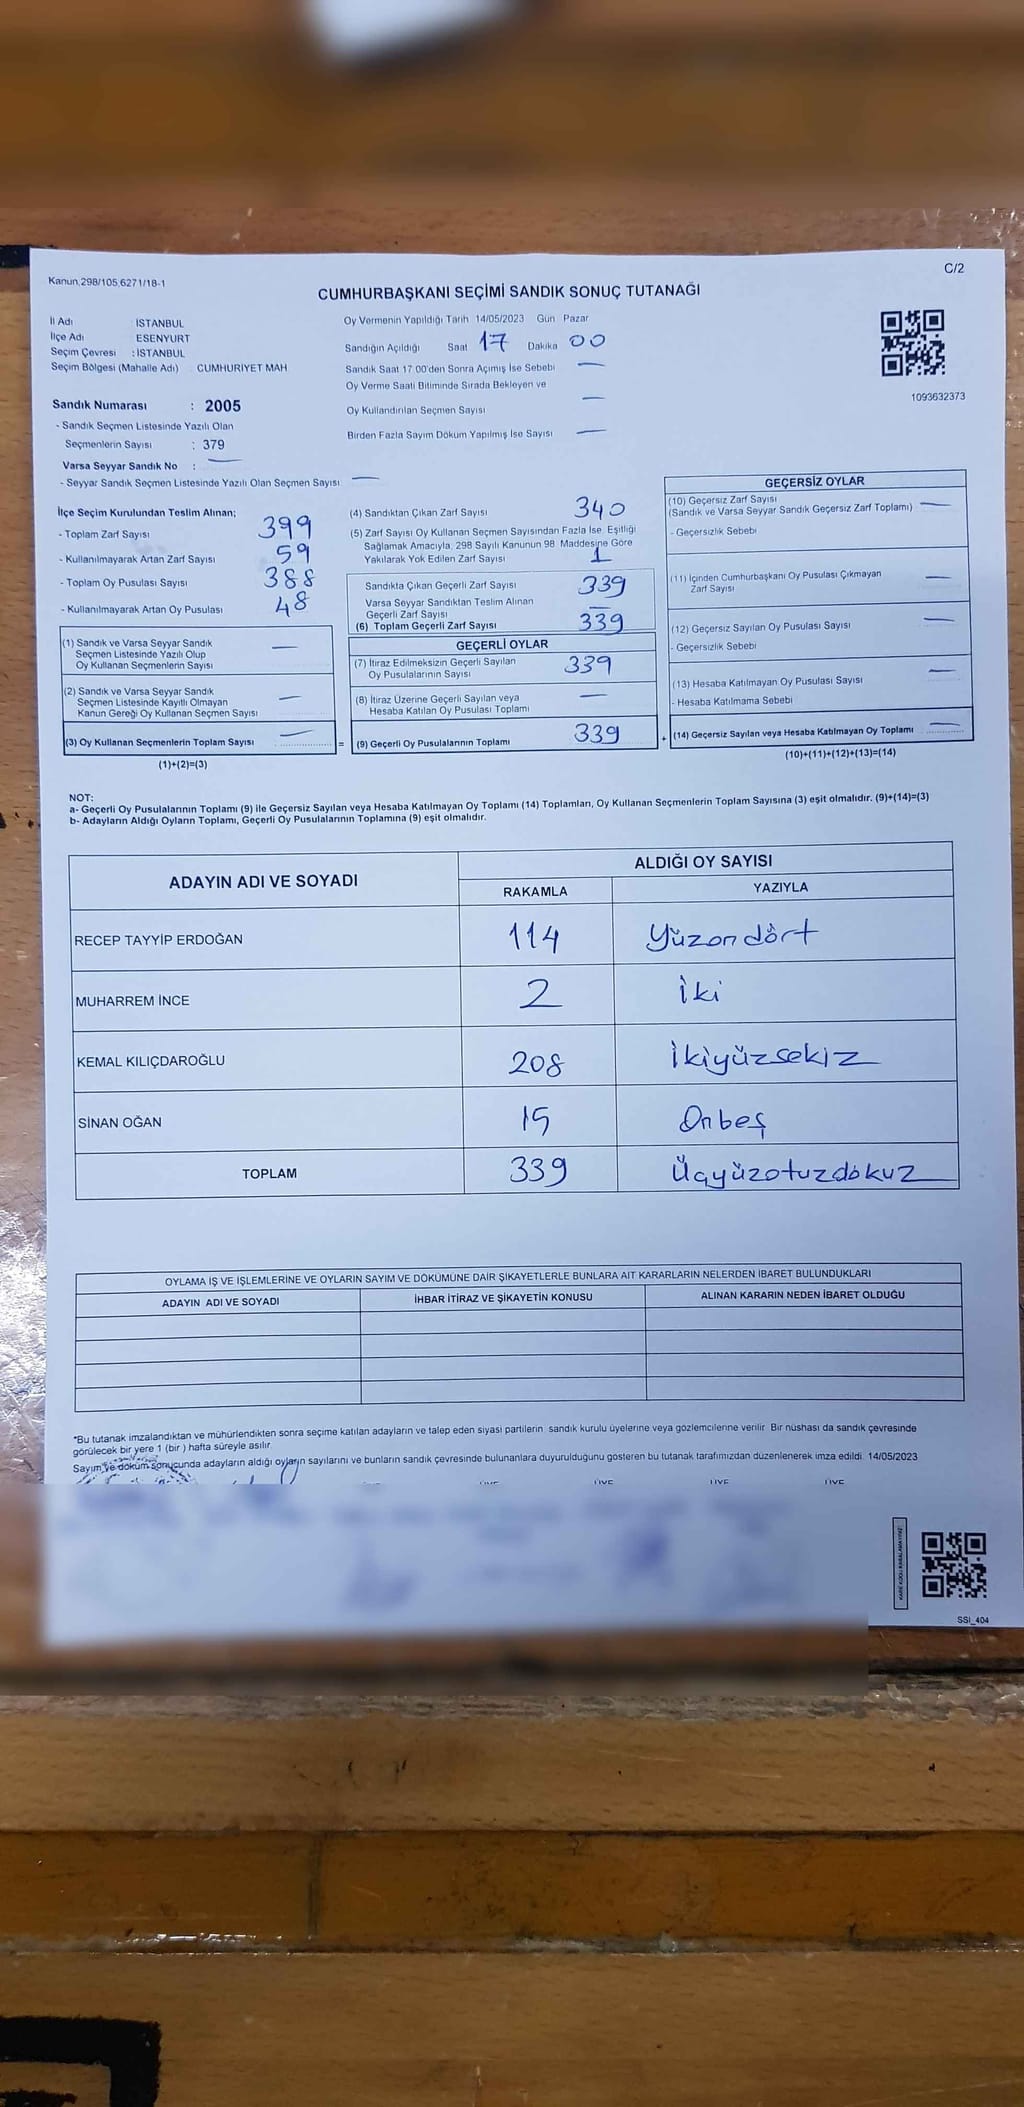 Kanun,298/105,6271/18-1
C/2
CUMHURBAŞKANI SEÇİMİ SANDIK SONUÇ TUTANAĞI
İl Adı İSTANBUL
İlçe Adı ESENYURT
Seçim Çevresi : İSTANBUL
Seçim Bölgesi (Mahalle Adı) CUMHURİYET MAH
Sandık Numarası : 2005
- Sandık Seçmen Listesinde Yazılı Olan
Seçmenlerin Sayısı : 379
Varsa Seyyar Sandık No : —
- Seyyar Sandık Seçmen Listesinde Yazılı Olan Seçmen Sayısı —
Oy Vermenin Yapıldığı Tarih 14/05/2023 Gün Pazar
Sandığın Açıldığı Saat 17 Dakika 00
Sandık Saat 17.00'den Sonra Açımış İse Sebebi —
Oy Verme Saati Bitiminde Sırada Bekleyen ve
Oy Kullandırılan Seçmen Sayısı —
Birden Fazla Sayım Döküm Yapılmış İse Sayısı —
1093632373
İlçe Seçim Kurulundan Teslim Alınan;
- Toplam Zarf Sayısı 399
- Kullanılmayarak Artan Zarf Sayısı 59
- Toplam Oy Pusulası Sayısı 388
- Kullanılmayarak Artan Oy Pusulası 48
(1) Sandık ve Varsa Seyyar Sandık
Seçmen Listesinde Yazılı Olup
Oy Kullanan Seçmenlerin Sayısı —
(2) Sandık ve Varsa Seyyar Sandık
Seçmen Listesinde Kayıtlı Olmayan
Kanun Gereği Oy Kullanan Seçmen Sayısı —
(3) Oy Kullanan Seçmenlerin Toplam Sayısı —
(1)+(2)=(3)
(4) Sandıktan Çıkan Zarf Sayısı 340
(5) Zarf Sayısı Oy Kullanan Seçmen Sayısından Fazla İse, Eşitliği
Sağlamak Amacıyla, 298 Sayılı Kanunun 98. Maddesine Göre
Yakılarak Yok Edilen Zarf Sayısı 1
Sandıkta Çıkan Geçerli Zarf Sayısı 339
Varsa Seyyar Sandıktan Teslim Alınan
Geçerli Zarf Sayısı —
(6) Toplam Geçerli Zarf Sayısı 339
GEÇERLİ OYLAR
(7) İtiraz Edilmeksizin Geçerli Sayılan
Oy Pusulalarının Sayısı 339
(8) İtiraz Üzerine Geçerli Sayılan veya
Hesaba Katılan Oy Pusulası Toplamı —
= (9) Geçerli Oy Pusulalarının Toplamı 339
GEÇERSİZ OYLAR
(10) Geçersiz Zarf Sayısı
(Sandık ve Varsa Seyyar Sandık Geçersiz Zarf Toplamı) —
- Geçersizlik Sebebi
(11) İçinden Cumhurbaşkanı Oy Pusulası Çıkmayan
Zarf Sayısı —
(12) Geçersiz Sayılan Oy Pusulası Sayısı —
- Geçersizlik Sebebi
(13) Hesaba Katılmayan Oy Pusulası Sayısı —
- Hesaba Katılmama Sebebi
+ (14) Geçersiz Sayılan veya Hesaba Katılmayan Oy Toplamı —
(10)+(11)+(12)+(13)=(14)
NOT:
a- Geçerli Oy Pusulalarının Toplamı (9) ile Geçersiz Sayılan veya Hesaba Katılmayan Oy Toplamı (14) Toplamları, Oy Kullanan Seçmenlerin Toplam Sayısına (3) eşit olmalıdır. (9)+(14)=(3)
b- Adayların Aldığı Oyların Toplamı, Geçerli Oy Pusulalarının Toplamına (9) eşit olmalıdır.
ADAYIN ADI VE SOYADI ALDIĞI OY SAYISI
RAKAMLA YAZIYLA
RECEP TAYYİP ERDOĞAN 114 Yüzondört
MUHARREM İNCE 2 İki
KEMAL KILIÇDAROĞLU 208 İkiyüzsekiz
SİNAN OĞAN 15 Onbeş
TOPLAM 339 Üçyüzotuzdokuz
OYLAMA İŞ VE İŞLEMLERİNE VE OYLARIN SAYIM VE DÖKÜMÜNE DAİR ŞİKAYETLERLE BUNLARA AİT KARARLARIN NELERDEN İBARET BULUNDUKLARI
ADAYIN ADI VE SOYADI İHBAR İTİRAZ VE ŞİKAYETİN KONUSU ALINAN KARARIN NEDEN İBARET OLDUĞU
*Bu tutanak imzalandıktan ve mühürlendikten sonra seçime katılan adayların ve talep eden siyasi partilerin sandık kurulu üyelerine veya gözlemcilerine verilir. Bir nüshası da sandık çevresinde
görülecek bir yere 1 (bir ) hafta süreyle asılır.
Sayım ve döküm sonucunda adayların aldığı oyların sayılarını ve bunların sandık çevresinde bulunanlara duyurulduğunu gösteren bu tutanak tarafımızdan düzenlenerek imza edildi. 14/05/2023
ÜYE ÜYE ÜYE ÜYE
SSI_404